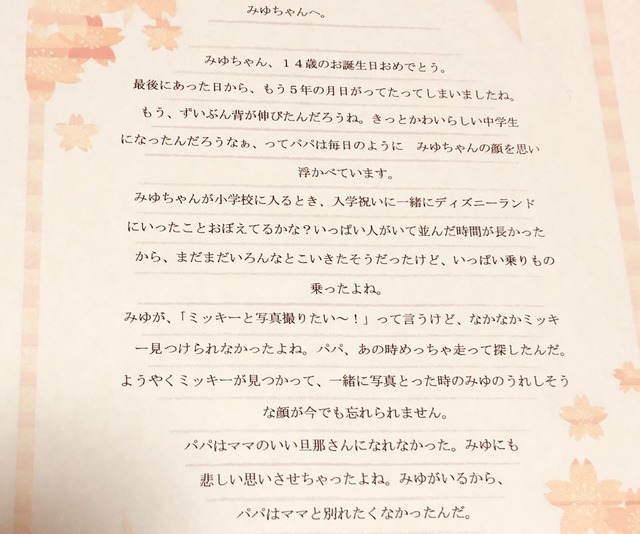 みゆちゃんへ。
みゆちゃん、１４歳のお誕生日おめでとう。
最後にあった日から、もう５年の月日がってたってしまいましたね。
もう、ずいぶん背が伸びたんだろうね。きっとかわいらしい中学生
になったんだろうなぁ、ってパパは毎日のように　みゆちゃんの顔を思い
浮かべています。
みゆちゃんが小学校に入るとき、入学祝いに一緒にディズニーランド
にいったことおぼえてるかな？いっぱい人がいて並んだ時間が長かった
から、まだまだいろんなとこいきたそうだったけど、いっぱい乗りもの
乗ったよね。
みゆが、「ミッキーと写真撮りたい～！」って言うけど、なかなかミッキ
ー見つけられなかったよね。パパ、あの時めっちゃ走って探したんだ。
ようやくミッキーが見つかって、一緒に写真とった時のみゆのうれしそう
な顔が今でも忘れられません。
パパはママのいい旦那さんになれなかった。みゆにも
悲しい思いさせちゃったよね。みゆがいるから、
パパはママと別れたくなかったんだ。